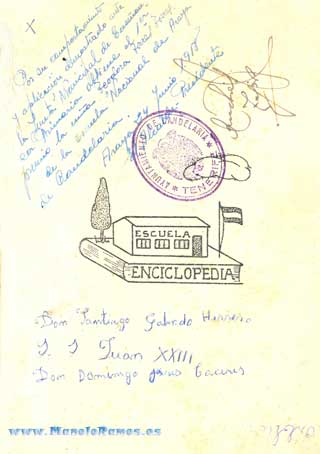 X
Por su comportamiento
y aplicación demostrado ante
la Junta Municipal de Enseñanza
en Primaria obtiene el 1er
premio la niña
de la Escuela Nacional de
de Candelaria. Junio
Presidente
AYUNTAMIENTO DE CANDELARIA
TENERIFE
ESCUELA
ENCICLOPEDIA
Don Santiago Galindo Herrero
S. S Juan XXIII
Don Domingo Caceres
www.ManoloRamos.es